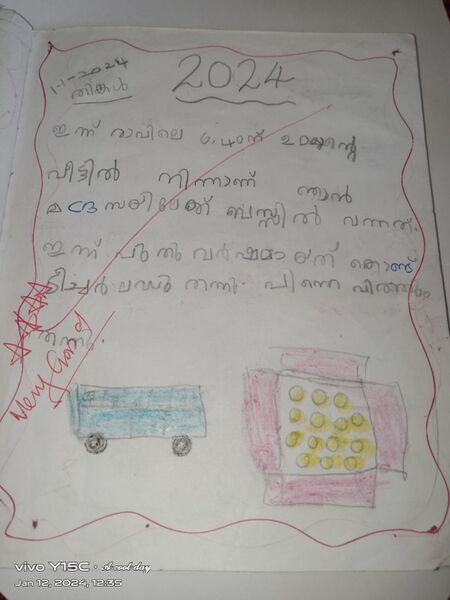 1-1-2024
തിങ്കൾ
2024
ഇന്ന് രാവിലെ 6.40ന് ഉമ്മന്റെ
വീട്ടിൽ നിന്നാണ് ഞാൻ
മദ്രസയിലേക്ക് ബസ്സിൽ വന്നത്.
ഇന്ന് പുതുവർഷമായത് കൊണ്ട്
ടീച്ചർ ലഡു തന്നു. പിന്നെ
തന്നു.
Very Good
vivo Y15C • A cool day
Jan 12, 2024, 12:35